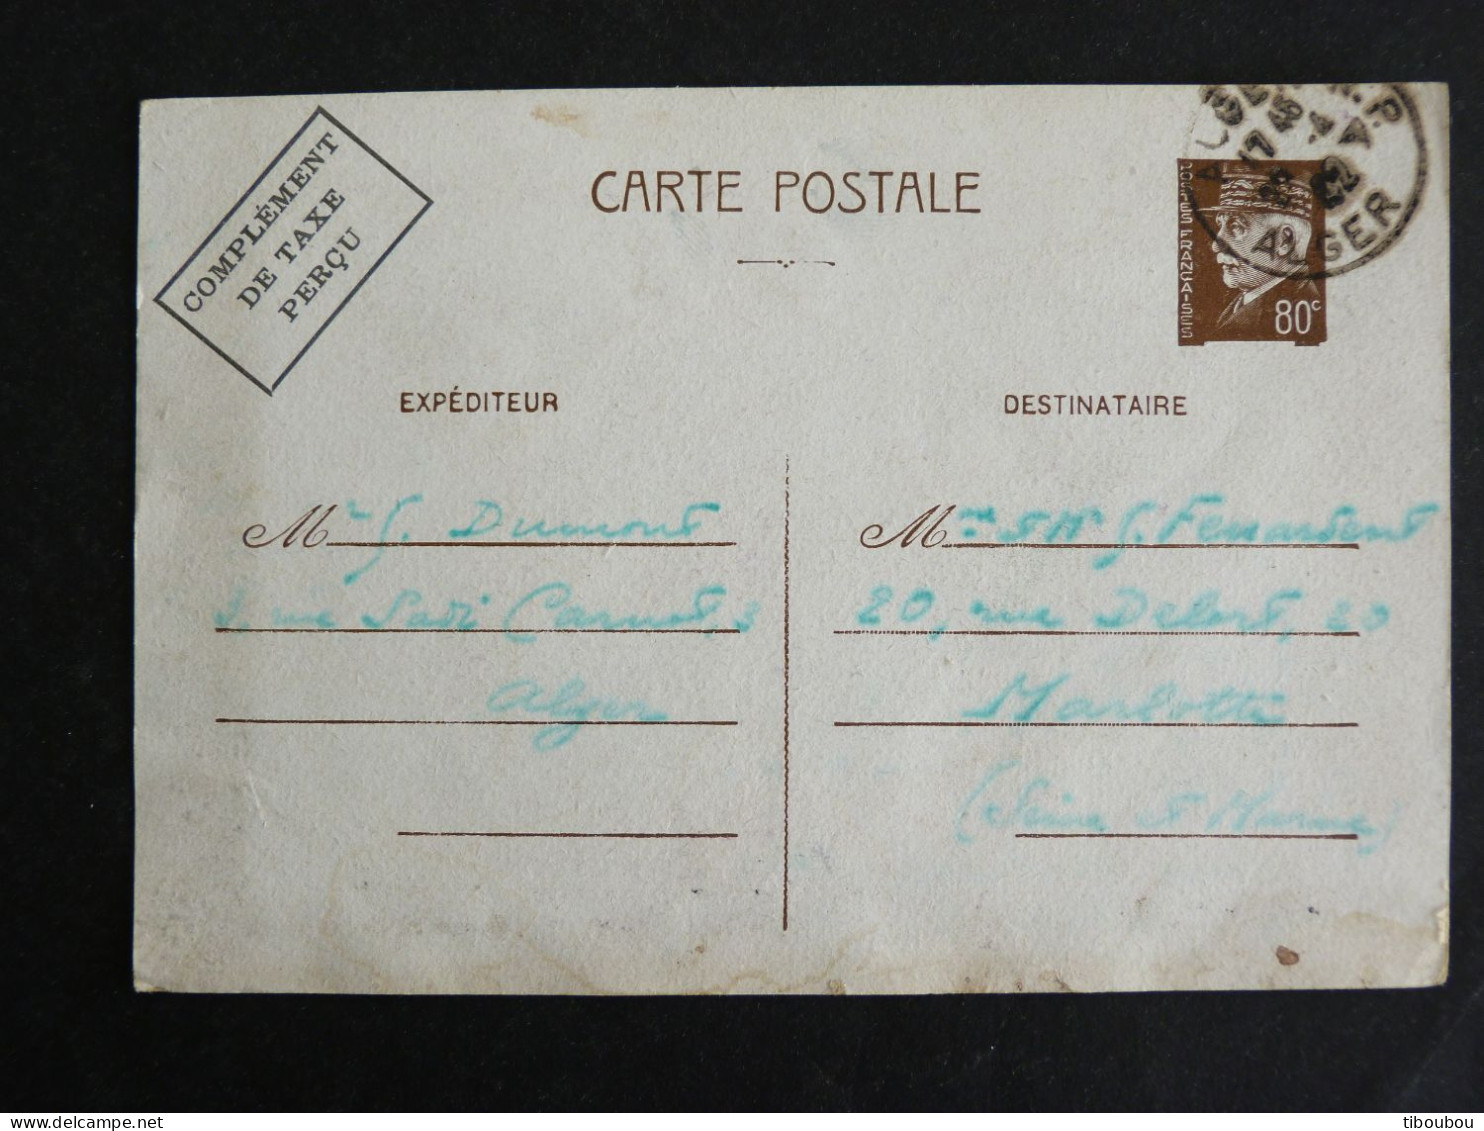 COMPLÉMENT
DE TAXE
PERÇU
CARTE POSTALE
POSTES FRANÇAISES
80c
ALGER R.P
17 45
ALGER
EXPÉDITEUR
Mr G. Dumont
3, rue Sadi Carnot, 3
Alger
DESTINATAIRE
Mme et Mr G. Fenardent
20, rue Delort, 20
Marlotte
(Seine et Marne)
tiboubou